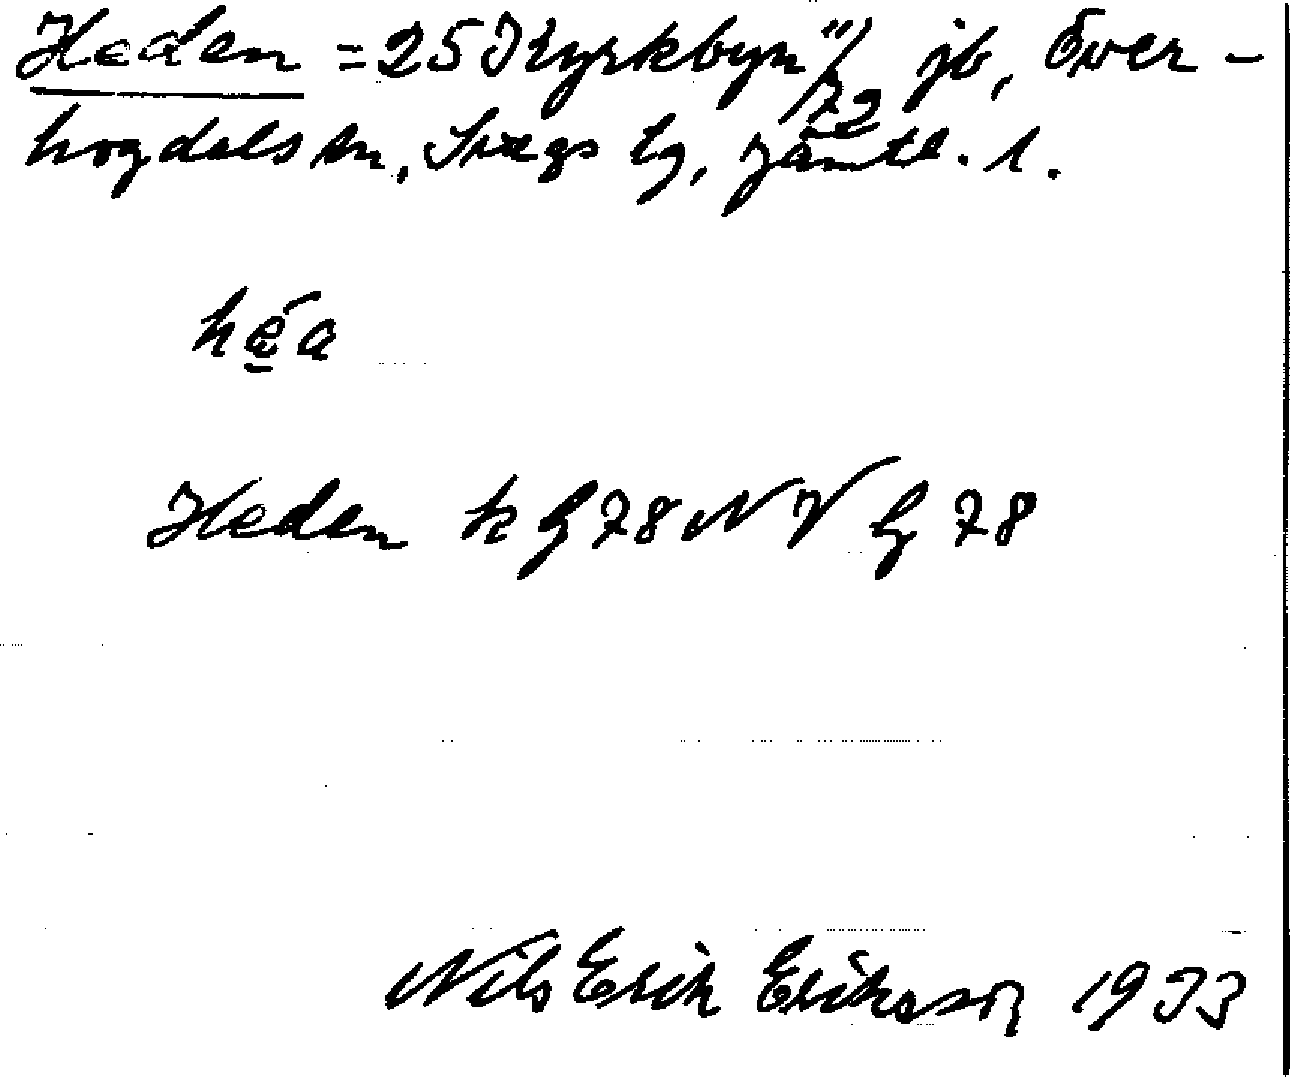 Heden = 25 Kyrkbyn 11/72 jb, Över-
hogdals sn, Svegs tg, Jämtl. l.
héa
Heden k G 78 NV G 78
Nils Erik Eriksson 1933